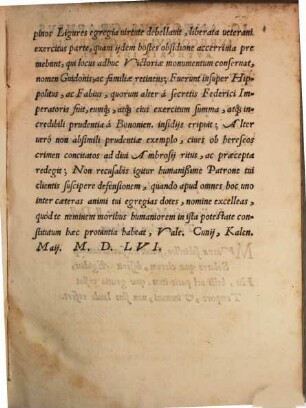 pinos Ligures egregia uirtute debellauit, liberata ueterani
exercitus parte, quam ijdem hostes obsidione accerrima pre
mebant, qui locus adhuc Victoriæ monumentum conseruat,
nomen Guidonis, ac familiæ retinens; Fuerunt insuper Hip
politus, ac Fabius, quorum alter à secretis Federici Im
peratoris fuit, eumq́; atq́; eius exercitum summa, atq́; in
credibili prudentia à Bononien. insidijs eripuit; Alter
uerò non absimili prudentiæ exemplo, ciues ob hereseos
crimen concitatos ad diui Ambrosij ritus, ac præcepta
redegit; Non recusabis igitur humanissime Patrone tui
clientis suscipere defensionem, quando apud omnes hoc uno
inter cæteras animi tui egregias dotes, nomine excelleas,
quòd te neminem moribus humaniorem in ista potestate con
stitutum hæc prouintia habeat, Vale. Cunij, Kalen.
Maij. M. D. LVI.